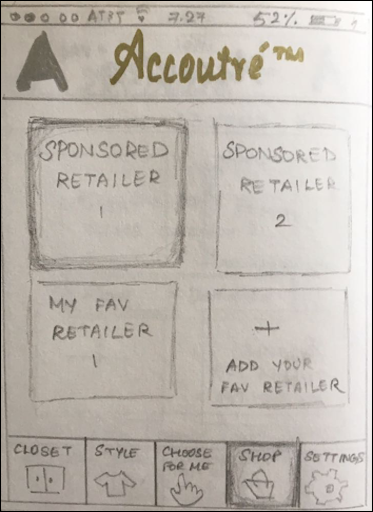 AT&T 7.27 52%
A Accoutré™
SPONSORED
RETAILER
1
SPONSORED
RETAILER
2
MY FAV
RETAILER
1
+
ADD YOUR
FAV RETAILER
CLOSET
STYLE
CHOOSE
FOR ME
SHOP
SETTINGS